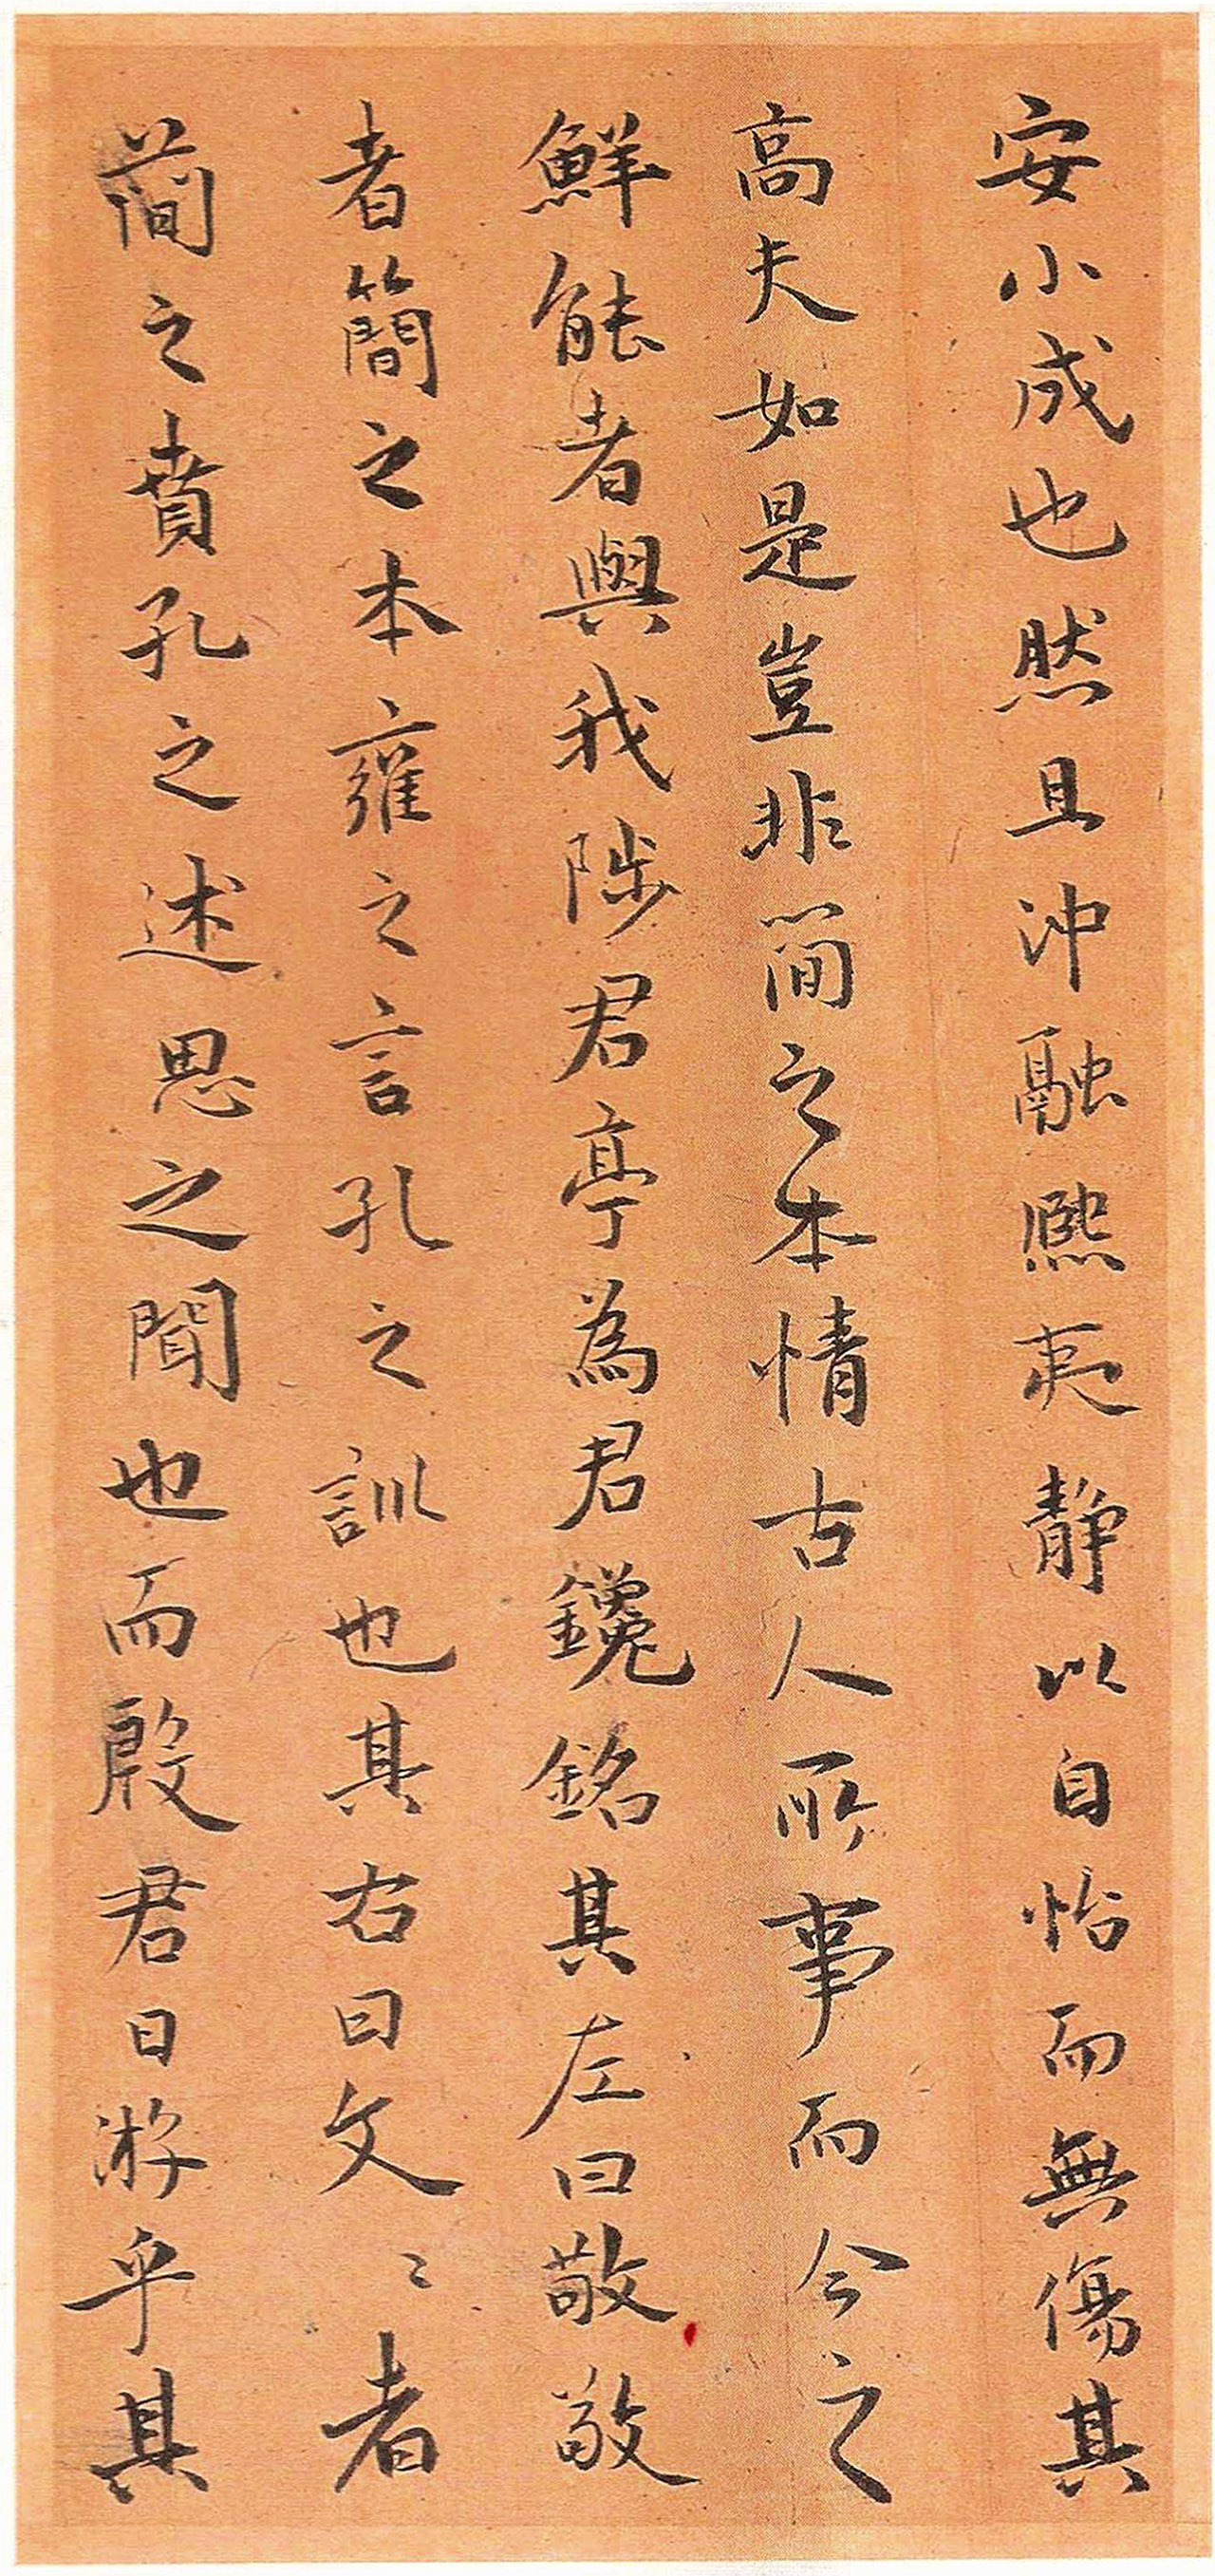 安小成也然且沖融熙夷静以自怡而無傷其
高夫如是豈非簡之本情古人所事而今之
鮮能者與我陟君亭為君鑱銘其左曰敬敬
者簡之本雍之言孔之訓也其右曰文〻者
簡之賁孔之述思之聞也而殷君日游乎其